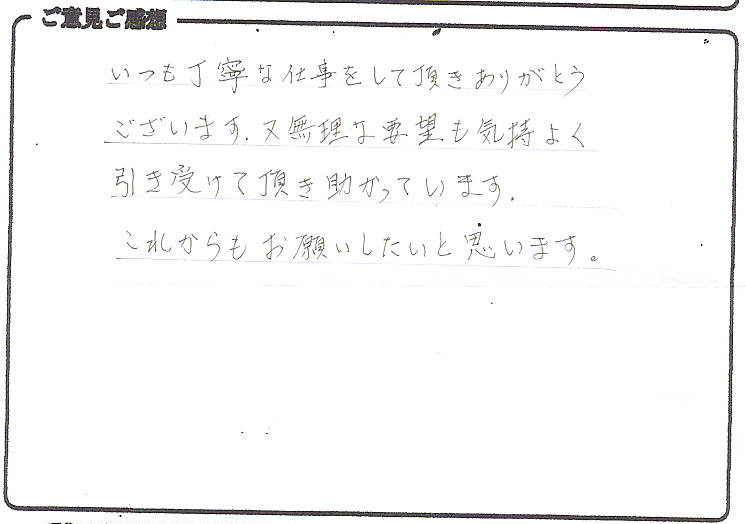 ご意見ご感想
いつも丁寧な仕事をして頂きありがとう
ございます.又無理な要望も気持よく
引き受けて頂き助かっています.
これからもお願いしたいと思います。